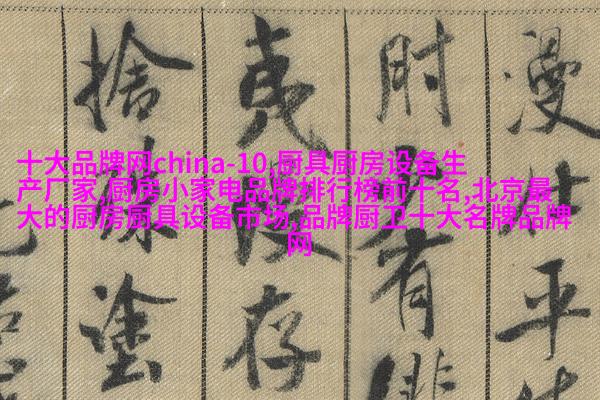 十大品牌网china-10,厨具厨房设备生
产厂家,厨房小家电品牌排行榜前十名,北京最
大的厨房厨具设备市场,品牌厨卫十大名牌品牌
网
漫 平
有
夷 存
捨 塗